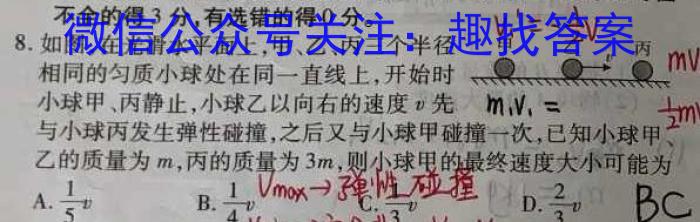 不全的得3分,有选错的得0分。
微信公众号关注：趣找答案
8.如
水平面上,甲、乙、丙三个半径
相同的匀质小球处在同一直线上,开始时
小球甲、丙静止,小球乙以向右的速度v先
与小球丙发生弹性碰撞,之后又与小球甲碰撞一次,已知小球甲、
乙的质量为m,丙的质量为3m,则小球甲的最终速度大小可能为
丙
v
mv
m₁v₁ =
Vmax→弹性碰撞
A. 1/5 v B. 1/4 v C. 1/3 v D. 2/3 v
BC